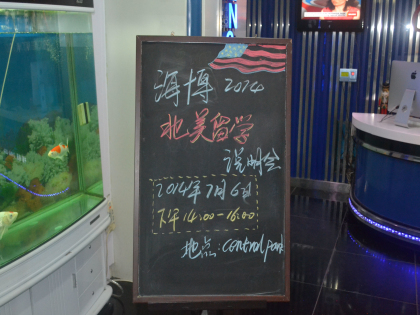 海博 2014
北美留学
说明会
2014年7月6日
下午 14:00-16:00
地点: central park